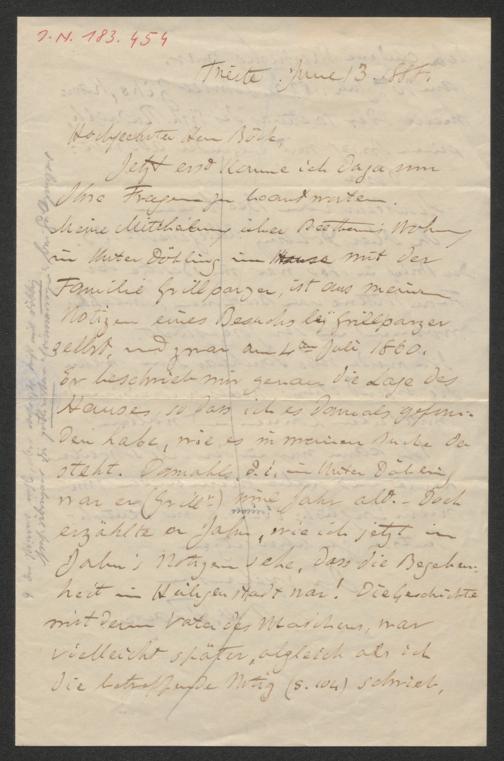 I.N. 183.454
Trieste June 3.
Hochgeehrter Herr Böck,
Jetzt erst komme ich dazu um
Ihre Fragen zu beantworten.
Meine Mittheilung über Wohnung
in Unter Döbling im Hause mit der
Familie Grillparzer, ist aus meinen
Notizen eines Besuchs bei Grillparzer
selbst, und zwar am 4ten Juli 1860.
Er beschrieb mir genau die Lage des
Hauses, so dass ich es damals gefun-
den habe, wie es in meinem Buche da
steht. Damahls, d.i. in Unter Döbling
war er (Grillp.) Jahr alt. - Doch
erzählte er Jahn, wie ich jetzt in
Jahn's Notizen sehe, dass die Begeben-
heit in Heiligenstadt war! Die Geschichte
mit dem Vater des war
vielleicht später, obgleich als ich
die betreffende Notiz (S. 104) schrieb,